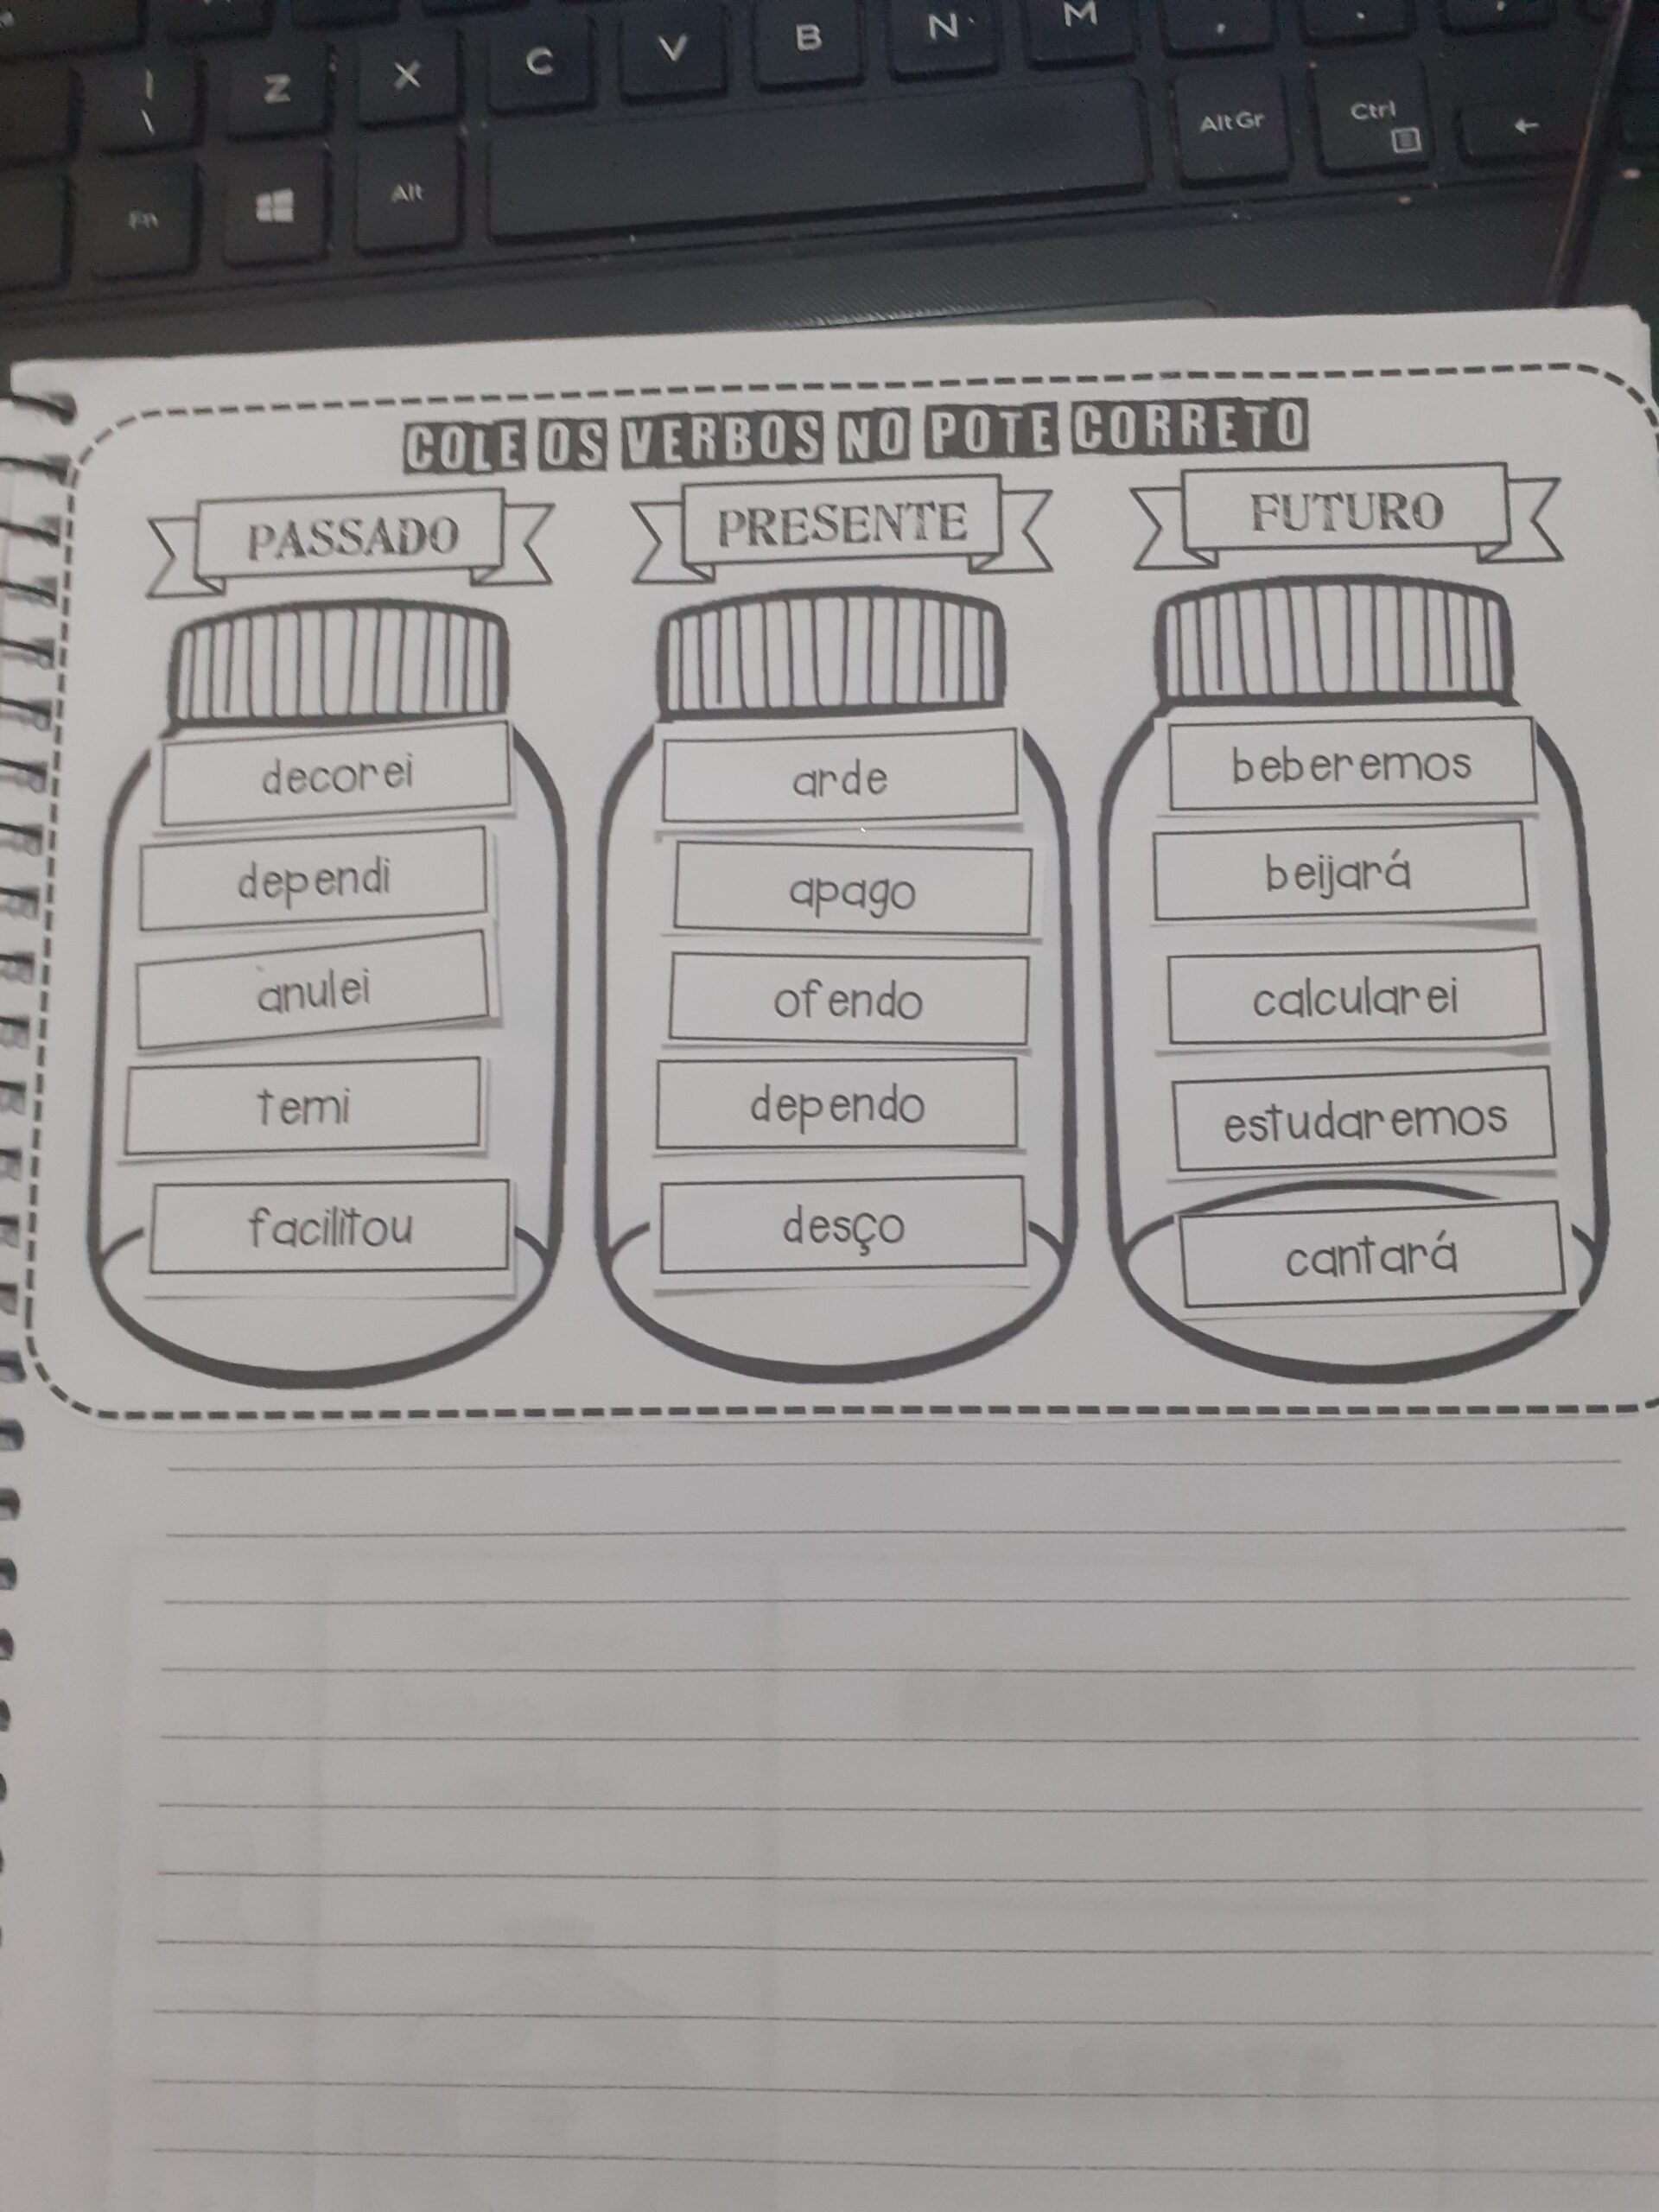 Z X C V B N M
Fn Alt Alt Gr Ctrl
COLE OS VERBOS NO POTE CORRETO
PASSADO
decorei
dependi
anulei
temi
facilitou
PRESENTE
arde
apago
ofendo
dependo
desço
FUTURO
beberemos
beijará
calcularei
estudaremos
cantará